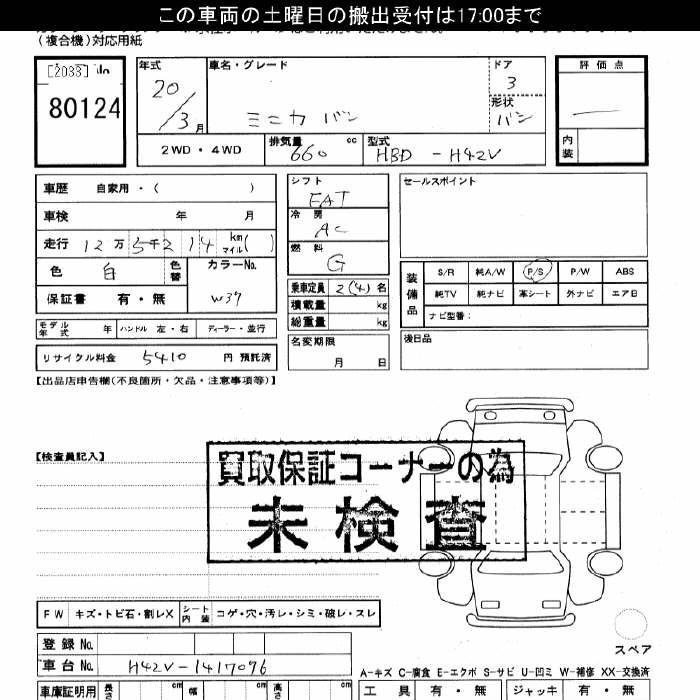 この車両の土曜日の搬出受付は17:00まで
(複合機)対応用紙
[2033] No
80124
年式
20/3月
車名・グレード
ミニカ バン
ドア
3
形状
バン
評価点
内装
2WD・4WD
排気量
660 cc
型式
HBD - H42V
車歴 自家用・( )
車検 年 月
走行 12万5千214 km マイル( )
色 白 色替
カラーNo.
W37
保証書 有・無
シフト
FAT
冷房
AC
燃料
G
乗車定員 2(4)名
積載量 kg
総重量 kg
名変期限
月 日
セールスポイント
装備品
S/R 純A/W P/S P/W ABS
純TV 純ナビ 革シート 外ナビ エアB
ナビ型番:
後日品
モデル年式 年 ハンドル 左・右 ディーラー・並行
リサイクル料金 5410 円 預託済
【出品店申告欄(不良箇所・欠品・注意事項等)】
【検査員記入】
買取保証コーナーの為
未検査
FW キズ・トビ石・割レX シート内装 コゲ・穴・汚レ・シミ・破レ・スレ
登録No.
車台No. H42V-1417096
スペア
A-キズ C-腐食 E-エクボ S-サビ U-凹ミ W-補修 XX-交換済
車庫証明用 長さ cm 幅 cm 高さ cm
工具 有・無 ジャッキ 有・無